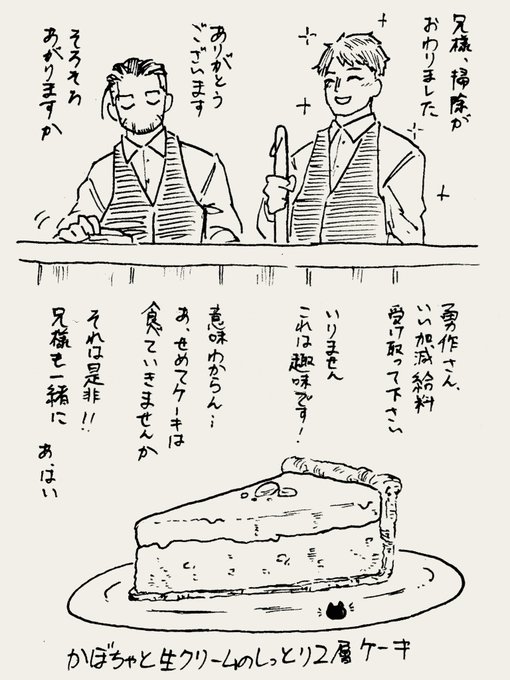 兄様、掃除が
おわりました
ありがとう
ございます
そろそろ
あがりますか
勇作さん、
いい加減給料
受け取って下さい
いりません
これは趣味です!
意味わからん…
あ、せめてケーキは
食べていきませんか
それは是非!!
兄様も一緒に
あ、はい
かぼちゃと生クリームのしっとり2層ケーキ